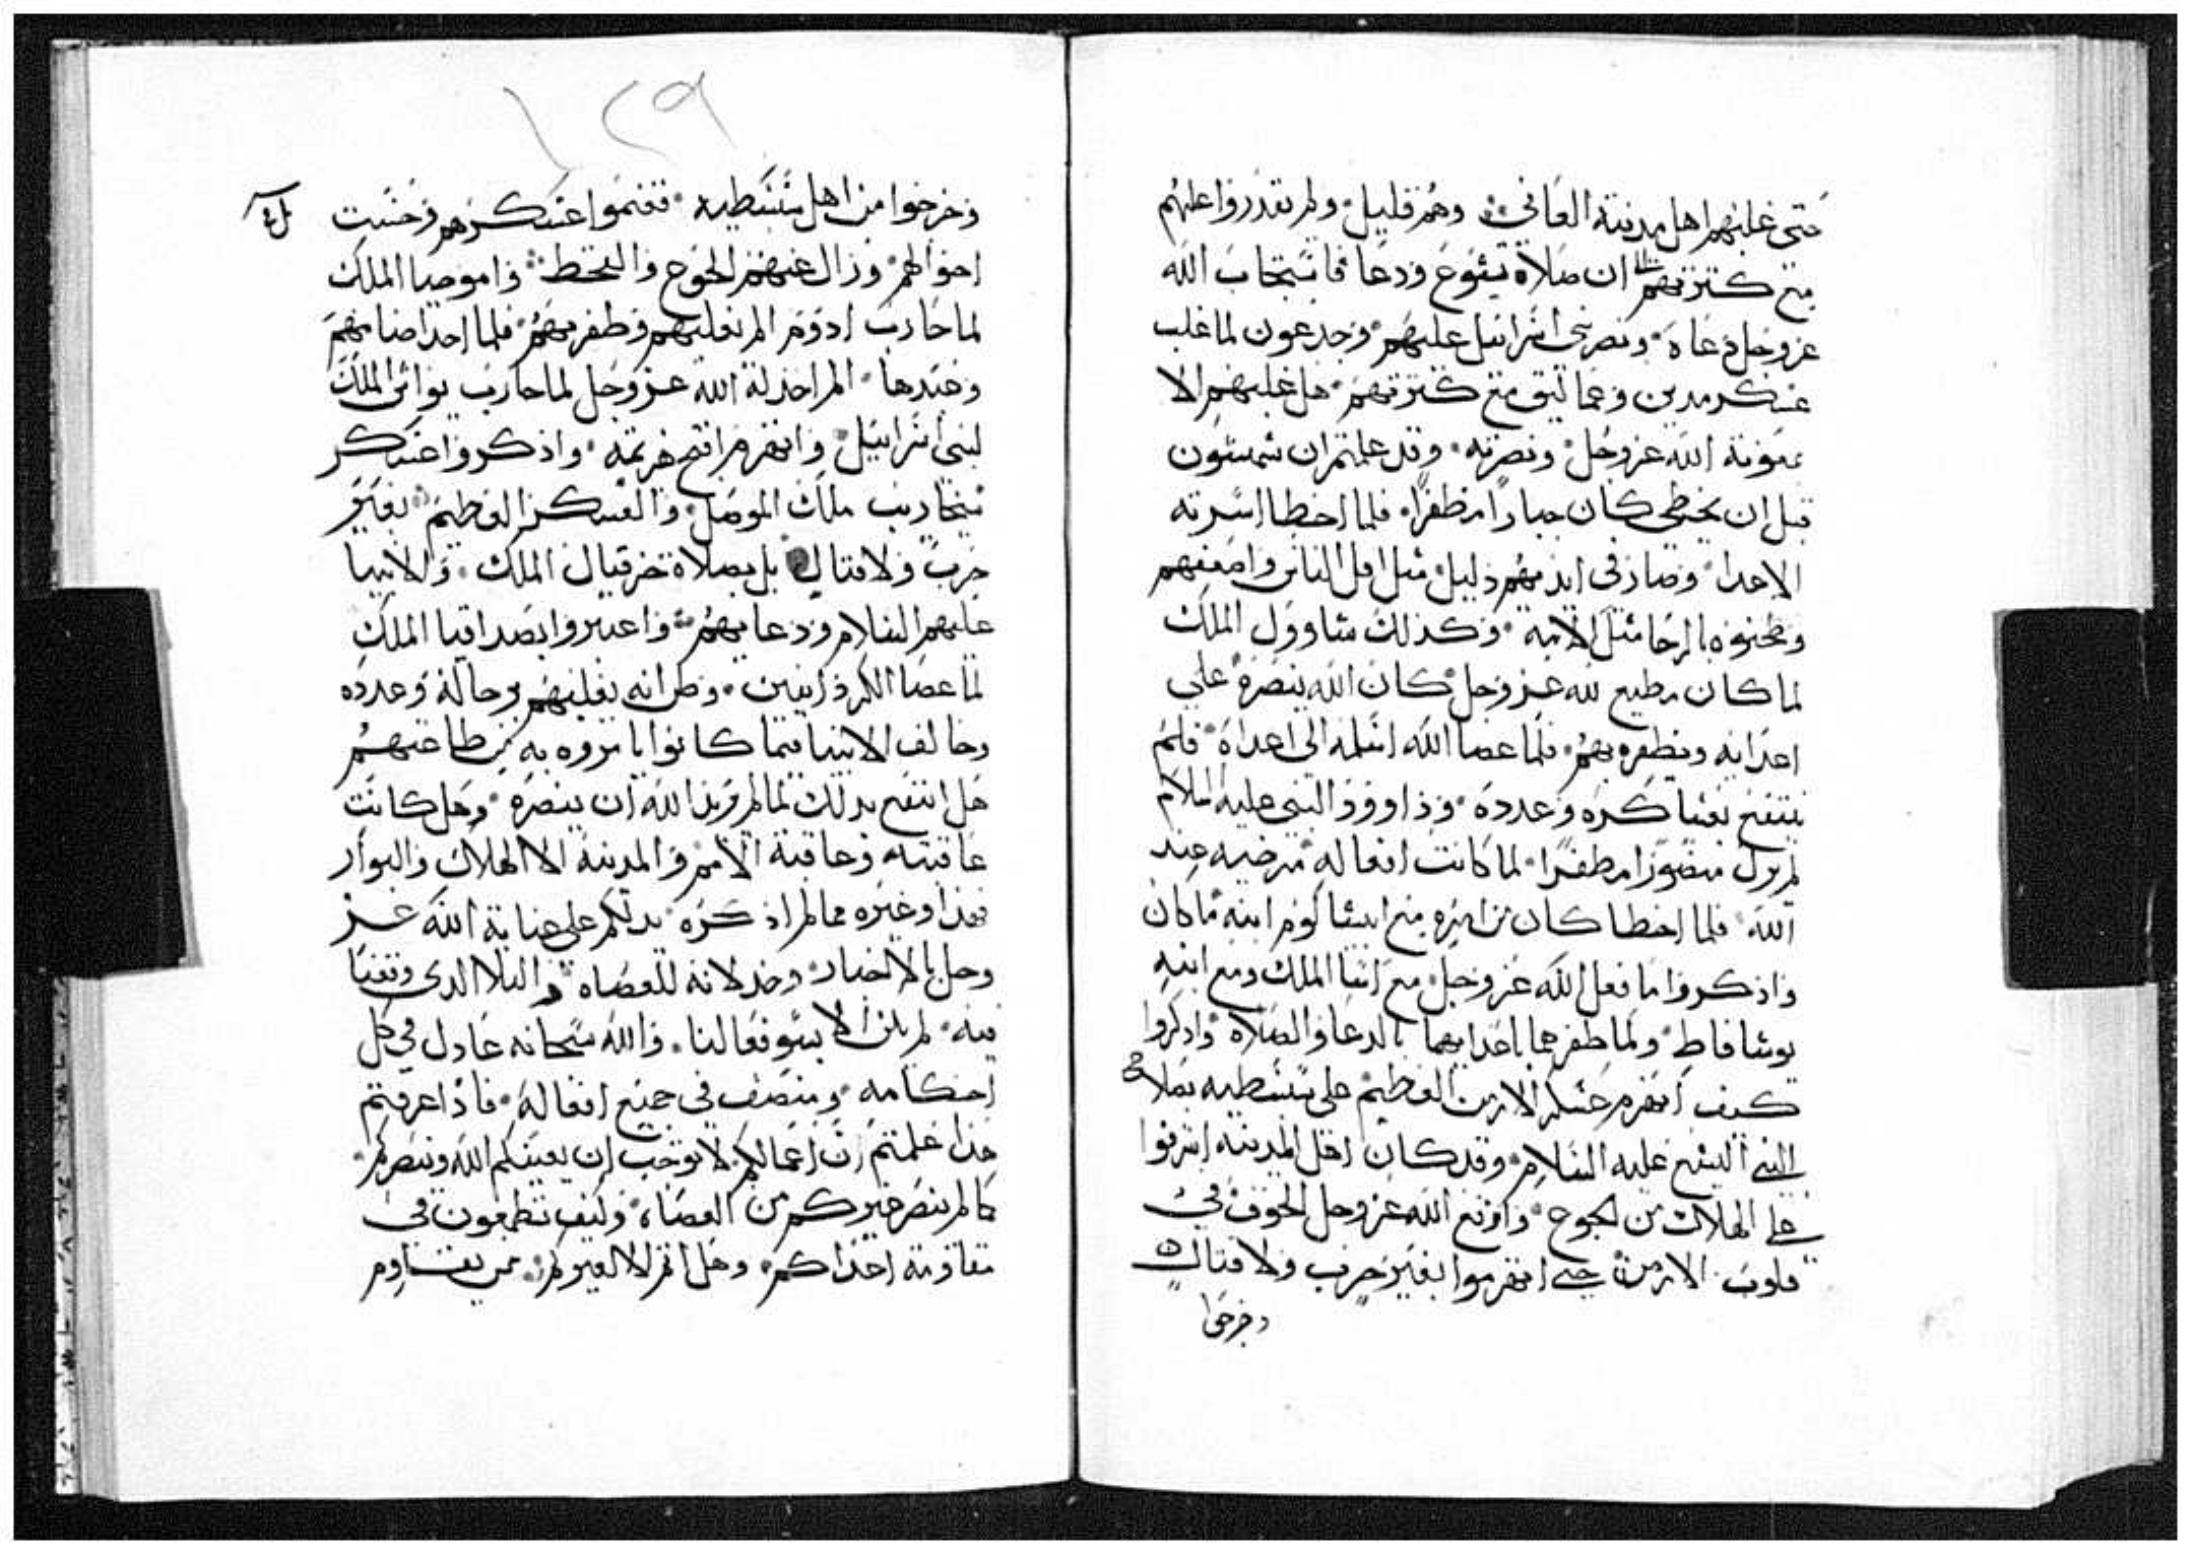 حتى غلبهم اهل مدينة العافي وهم قليل ولم يقدروا عليهم
مع كثرتهم الى ان صلاة يشوع ودعا فاستجاب الله
عز وجل دعاه ونصر بني اسرائيل عليهم وجدعون لما غلب
عسكر مدين وعماليق مع كثرتهم هل غلبهم الا
بمعونة الله عز وجل ونصرته وقد علمتم ان شمشون
قبل ان يخطي كان جبارا مظفرا فلما اخطا اسرته
الاعدا وصار في ايديهم ذليل مثل اقل الناس واضعفهم
وطحنوه بالرحا مثل الامه وكذلك شاوول الملك
لما كان مطيع لله عز وجل كان الله ينصره علي
اعدايه ويظفره بهم فلما عصا الله اسلمه الى اعداه فلم
ينتفع بعساكره وعدده وداوود النبي عليه السلام
لم يزل منصورا مظفرا لما كانت افعاله مرضيه عند
الله فلما اخطا كان من امره مع ابيشالوم ابنه ما كان
واذكروا ما فعل الله عز وجل مع اسا الملك ومع ابنه
يوشافاط ولما ظفرهما باعدايهما بالدعا والصلاه واذكروا
كيف انهزم عسكر الارمن العظيم على سبسطيه بصلاة
النبي اليشع عليه السلام وقد كان اهل المدينه اشرفوا
على الهلاك من الجوع واوقع الله عز وجل الخوف في
قلوب الارمن حتى انهزموا بغير حرب ولا قتال
وخرجوا
١٢٩
وخرجوا من اهل سبسطيه فغنموا عسكرهم وحسنت
احوالهم وزال عنهم الجوع والقحط واموصيا الملك
لما حارب ادوم الم يغلبهم وظفر بهم فلما اخذ اصنامهم
وعبدها الم اخذله الله عز وجل لما حارب يواش الملك
لبني اسرائيل وانهزم اقبح هزيمة واذكروا عسكر
سنحاريب ملك الموصل والعسكر العظيم بغير
حرب ولا قتال بل بصلاة حزقيال الملك والانبيا
عليهم السلام ودعايهم واعتبروا بصداقيا الملك
لما عصا الكردانيين وظن انه يغلبهم برجاله وعدده
وخالف الانبيا فيما كانوا يامروه به من طاعتهم
هل انتفع بذلك لما لم يريد الله ان ينصره وهل كانت
عاقبته وعاقبة الامم والمدينة الا الهلاك والبوار
فهذا وغيره مما لم اذكره يدلكم على عناية الله عز
وجل بالاخيار وخذلانه للعصاه والبلا الذي وقعنا
فيه لم يكن الا بسو فعالنا والله سبحانه عادل في كل
احكامه ومنصف في جميع افعاله فاذا عرفتم
هذا علمتم ان اعمالكم لا توجب ان يعينكم الله وينصركم
كما لم ينصر غيركم من العصاه وكيف تطمعون في
مقاومة اعداكم وهل انتم الا لغيركم ممن يقاوم